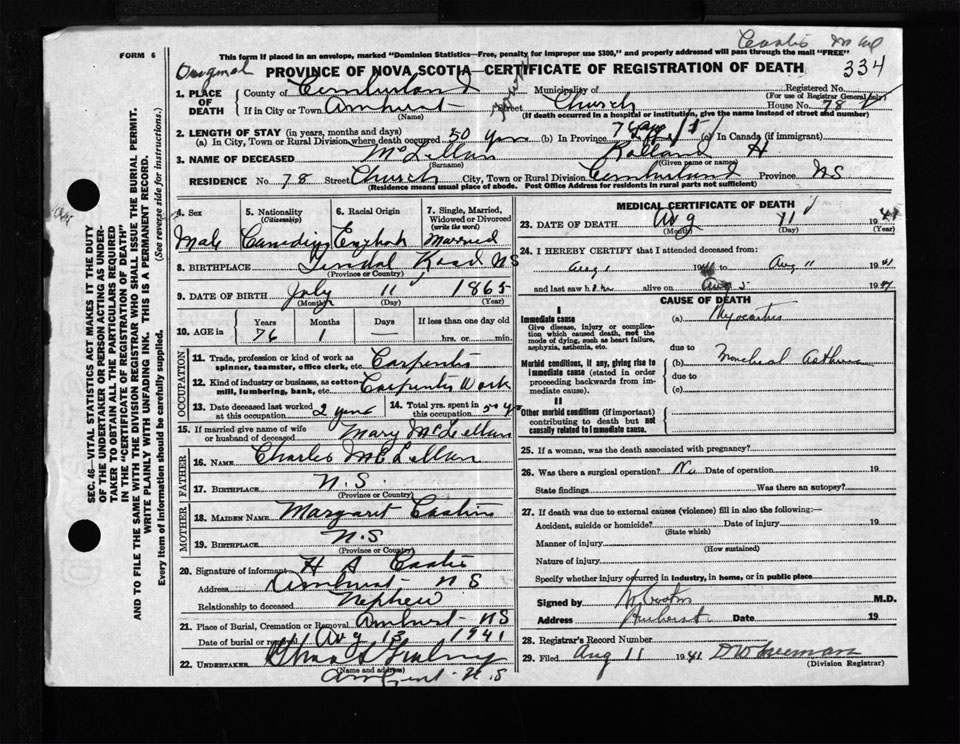 FORM 6
This form if placed in an envelope, marked "Dominion Statistics—Free, penalty for improper use $300," and properly addressed will pass through the mail "FREE"
Original PROVINCE OF NOVA SCOTIA—CERTIFICATE OF REGISTRATION OF DEATH 334
1. PLACE OF DEATH County of Cumberland Municipality of Registered No.
(For use of Registrar General only)
If in City or Town Amherst Street Church House No. 78
(Name) (If death occurred in a hospital or institution, give the name instead of street and number)
2. LENGTH OF STAY (in years, months and days)
(a) In City, Town or Rural Division where death occurred 50 yrs (b) In Province (c) In Canada (if immigrant)
3. NAME OF DECEASED McLellan H
(Surname) (Given name or names)
RESIDENCE No. 78 Street Church City, Town or Rural Division Cumberland Province NS
(Residence means usual place of abode. Post Office Address for residents in rural parts not sufficient)
4. Sex 5. Nationality (Citizenship) 6. Racial Origin 7. Single, Married, Widowed or Divorced (write the word)
Male Canadian English Married
8. BIRTHPLACE Road NS
(Province or Country)
9. DATE OF BIRTH July 11 1865
(Month) (Day) (Year)
10. AGE in Years Months Days If less than one day old
76 1 — hrs. or min.
OCCUPATION
11. Trade, profession or kind of work as spinner, teamster, office clerk, etc. Carpenter
12. Kind of industry or business, as cotton mill, lumbering, bank, etc. Carpenter Work
13. Date deceased last worked at this occupation 2 years 14. Total yrs. spent in this occupation 50 yrs
15. If married give name of wife or husband of deceased Mary McLellan
FATHER
16. NAME Charles McLellan
17. BIRTHPLACE N.S.
(Province or Country)
MOTHER
18. MAIDEN NAME Margaret
19. BIRTHPLACE N.S
(Province or Country)
20. Signature of informant H A
Address Amherst N S
Relationship to deceased Nephew
21. Place of Burial, Cremation or Removal Amherst NS
Date of burial or removal Aug 13 1941
22. UNDERTAKER
(Name and address)
Amherst N.S
MEDICAL CERTIFICATE OF DEATH
23. DATE OF DEATH Aug 11 1941
(Month) (Day) (Year)
24. I HEREBY CERTIFY that I attended deceased from:
Aug 1 1941 to Aug 11 1941
and last saw h im alive on Aug 5 1941
CAUSE OF DEATH
I
Immediate cause (a) Myocarditis
Give disease, injury or complication which caused death, not the mode of dying, such as heart failure, asphyxia, asthenia, etc.
due to
Morbid conditions, if any, giving rise to immediate cause (stated in order proceeding backwards from immediate cause). (b) Asthma
due to
(c)
II
Other morbid conditions (if important) contributing to death but not causally related to immediate cause.
25. If a woman, was the death associated with pregnancy?
26. Was there a surgical operation? No Date of operation 19
State findings Was there an autopsy?
27. If death was due to external causes (violence) fill in also the following:—
Accident, suicide or homicide? Date of injury 19
(State which)
Manner of injury
(How sustained)
Nature of injury
Specify whether injury occurred in industry, in home, or in public place
Signed by M.D.
Address Amherst Date 19
28. Registrar's Record Number
29. Filed Aug 11 1941
(Division Registrar)
SEC. 46—VITAL STATISTICS ACT MAKES IT THE DUTY
OF THE UNDERTAKER OR PERSON ACTING AS UNDER-
TAKER TO OBTAIN ALL THE PARTICULARS REQUIRED
IN THE "CERTIFICATE OF REGISTRATION OF DEATH"
AND TO FILE THE SAME WITH THE DIVISION REGISTRAR WHO SHALL ISSUE THE BURIAL PERMIT.
WRITE PLAINLY WITH UNFADING INK. THIS IS A PERMANENT RECORD.
Every item of information should be carefully supplied. (See reverse side for instructions.)